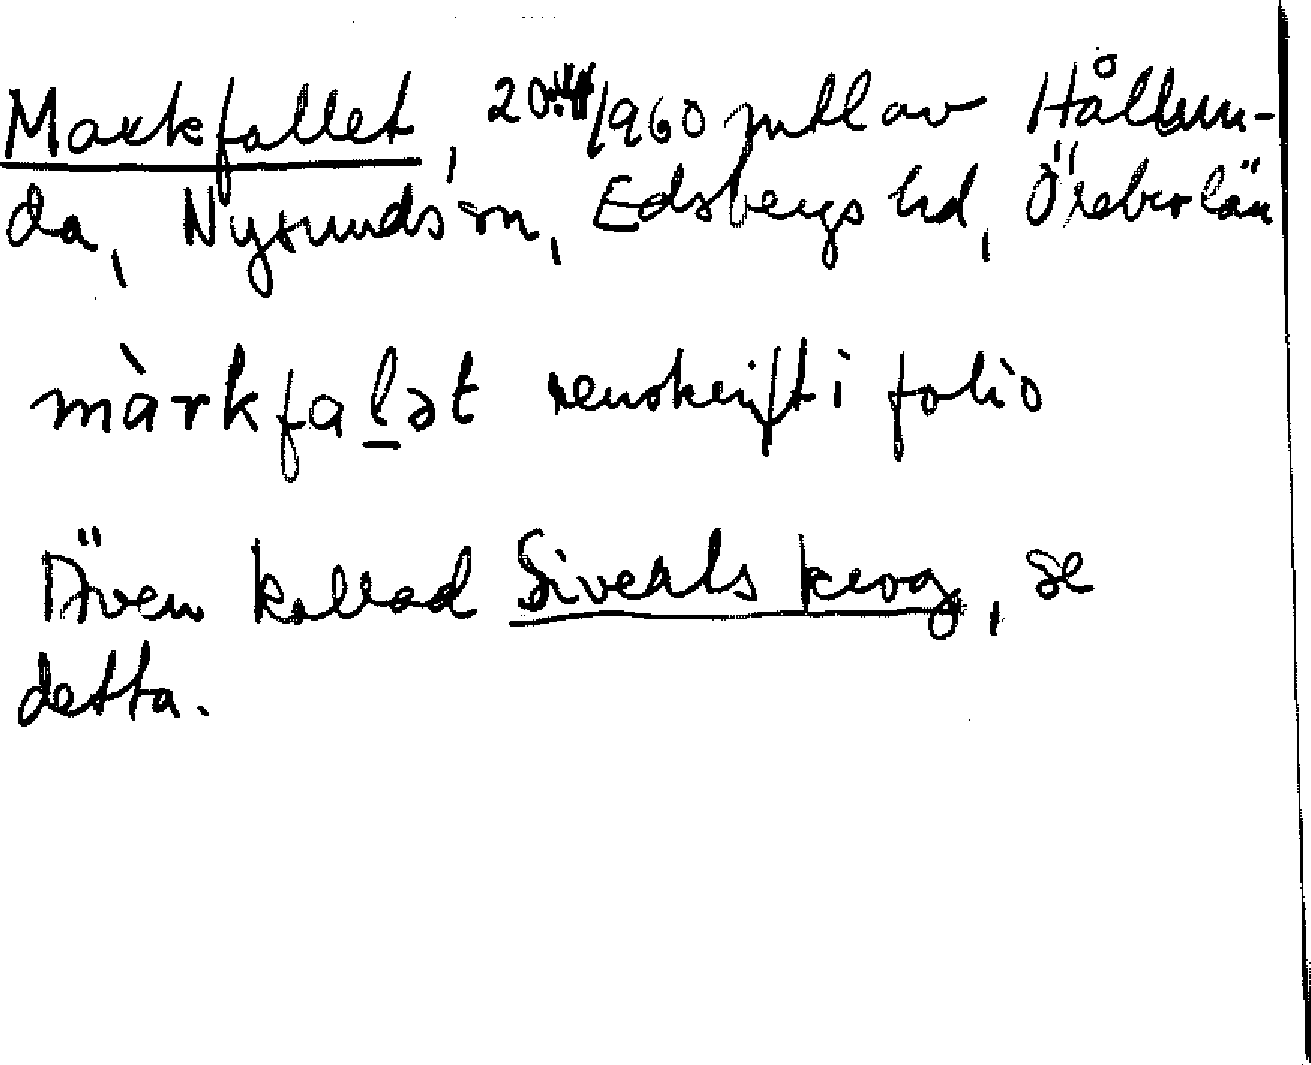 Markfallet, 20.4/960 mtl av Hållun-
da, Nysunds sn, Edsbergs hd, Örebro län
màrkfaḻət renskrift i folio
Även kallad Siverts krog, se
detta.